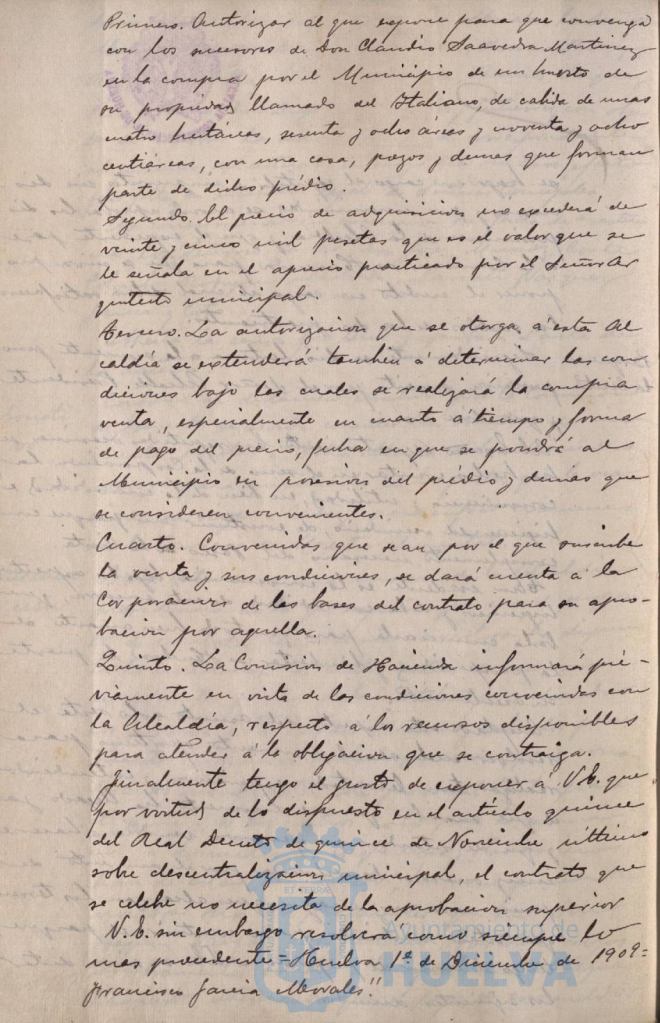 Primero. Autorizar al que expone para que convenga
con los sucesores de Don Claudio Saavedra Martinez
en la compra por el Municipio de un huerto de
su propiedad llamado del Italiano, de cabida de unas
cuatro hectáreas, sesenta y ocho áreas y noventa y ocho
centiáreas, con una casa, pozos y demas que forman
parte de dicho prédio.
Segundo. El precio de adquisicion no excederá de
veinte y cinco mil pesetas que es el valor que se
le señala en el aprecio practicado por el Señor Ar
quitecto municipal.
Tercero. La autorizacion que se otorga á esta Al
caldía se extenderá tambien á determinar las con
diciones bajo las cuales se realizará la compra
venta, especialmente en cuanto á tiempo y forma
de pago del precio, fecha en que se pondrá al
Municipio en posesion del prédio y demas que
se consideren convenientes.
Cuarto. Convenidas que sean por el que suscribe
la venta y sus condiciones, se dará cuenta á la
Corporacion de las bases del contrato para su apro-
bacion por aquella.
Quinto. La Comision de Hacienda informará pré-
viamente en vista de las condiciones convenidas con
la Alcaldía, respecto á los recursos disponibles
para atender á la obligacion que se contraiga.
Finalmente tengo el gusto de exponer á V.E. que
por virtud de lo dispuesto en el artículo quince
del Real Decreto de quince de Noviembre último
sobre descentralizacion municipal, el contrato que
se celebre no necesita de la aprobacion superior
V.E. sin embargo resolverá como siempre lo
mas procedente = Huelva 1º de Diciembre de 1909 =
Francisco García Morales."
Ayuntamiento de
HUELVA